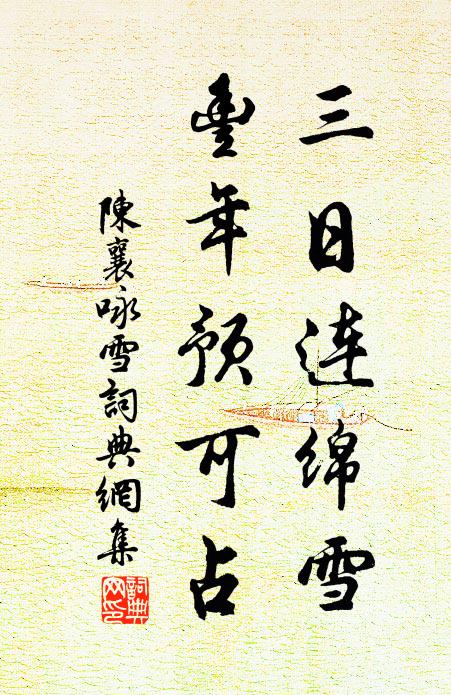 三日连绵雪
豐年预可占
陳襄咏雪詞典網集
詞典网印